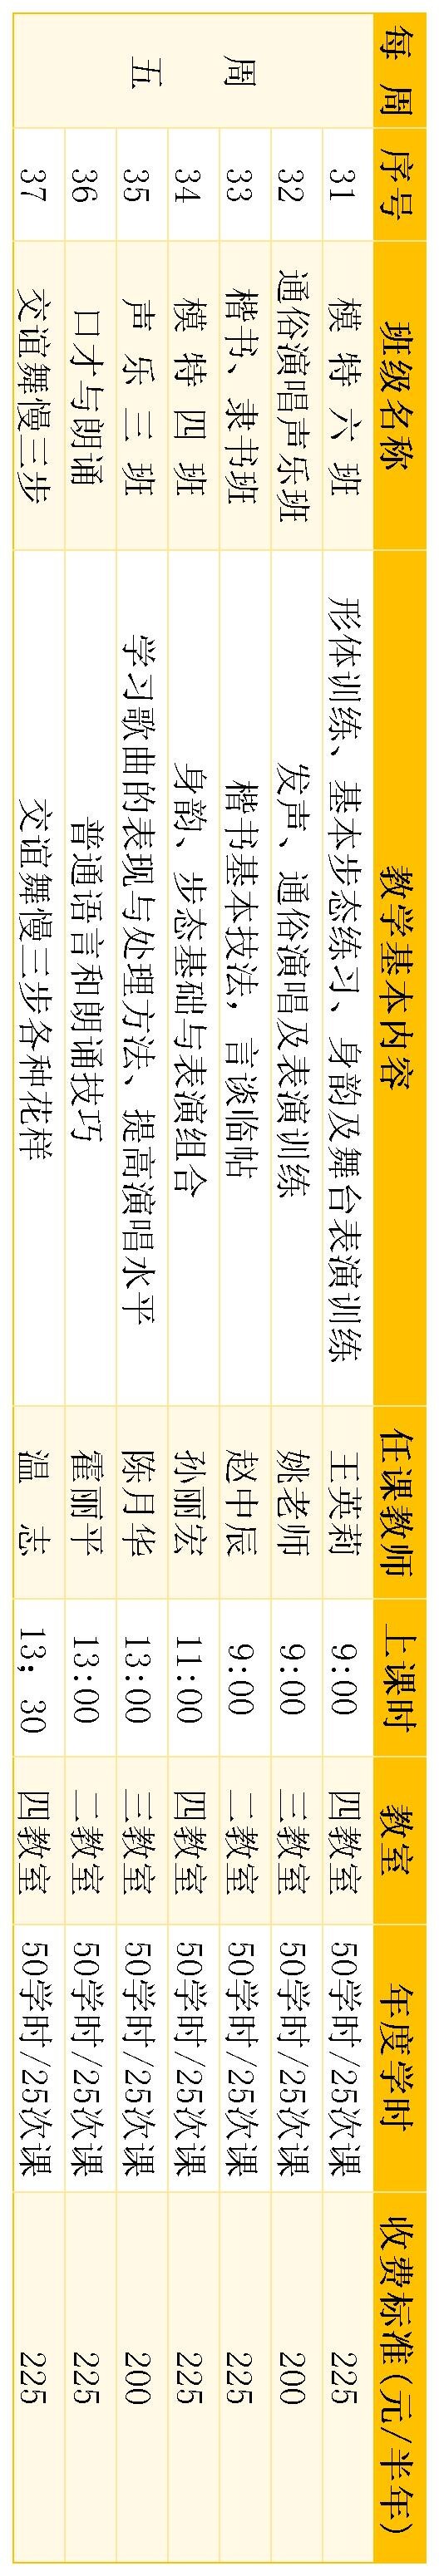 每 周 序号 班级名称 教学基本内容 任课教师 上课时 教室 年度学时 收费标准(元/半年)
周 五
31 模特六班 形体训练、基本步态练习、身韵及舞台表演训练 王英莉 9:00 四教室 50学时/25次课 225
32 通俗演唱声乐班 发声、通俗演唱及表演训练 姚老师 9:00 三教室 50学时/25次课 200
33 楷书、隶书班 楷书基本技法,言谈临帖 赵中辰 9:00 二教室 50学时/25次课 225
34 模特四班 身韵、步态基础与表演组合 孙丽宏 11:00 四教室 50学时/25次课 225
35 声乐三班 学习歌曲的表现与处理方法、提高演唱水平 陈月华 13:00 三教室 50学时/25次课 200
36 口才与朗诵 普通语言和朗诵技巧 霍丽平 13:00 二教室 50学时/25次课 225
37 交谊舞慢三步 交谊舞慢三步各种花样 温 志 13;30 四教室 50学时/25次课 225